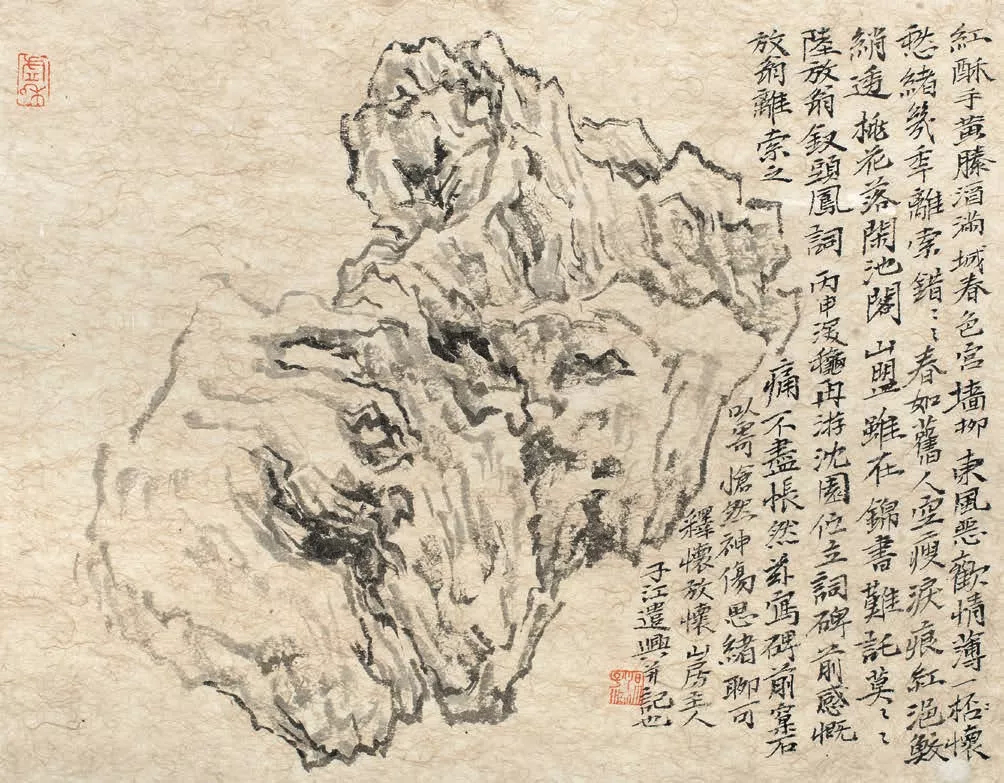 紅酥手黄滕酒滿城春色宫墙柳東風惡歡情薄一杯懷
愁緒幾年離索錯〻〻春如舊人空瘦淚痕紅浥鮫
綃透桃花落閑池閣山盟雖在錦書難託莫〻〻
陸放翁釵頭鳳詞丙申深穐再游沈園伫立詞碑前感慨
放翁離索之痛不盡悵然兹寫碑前石
以寄愴然神傷思緒聊可
釋懷放懷山房主人
子江遣興并記也